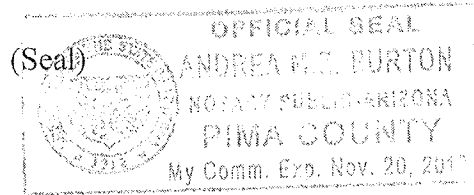 OFFICIAL SEAL
(Seal)
ANDREA M.S. BURTON
NOTARY PUBLIC-ARIZONA
PIMA COUNTY
My Comm. Exp. Nov. 20,